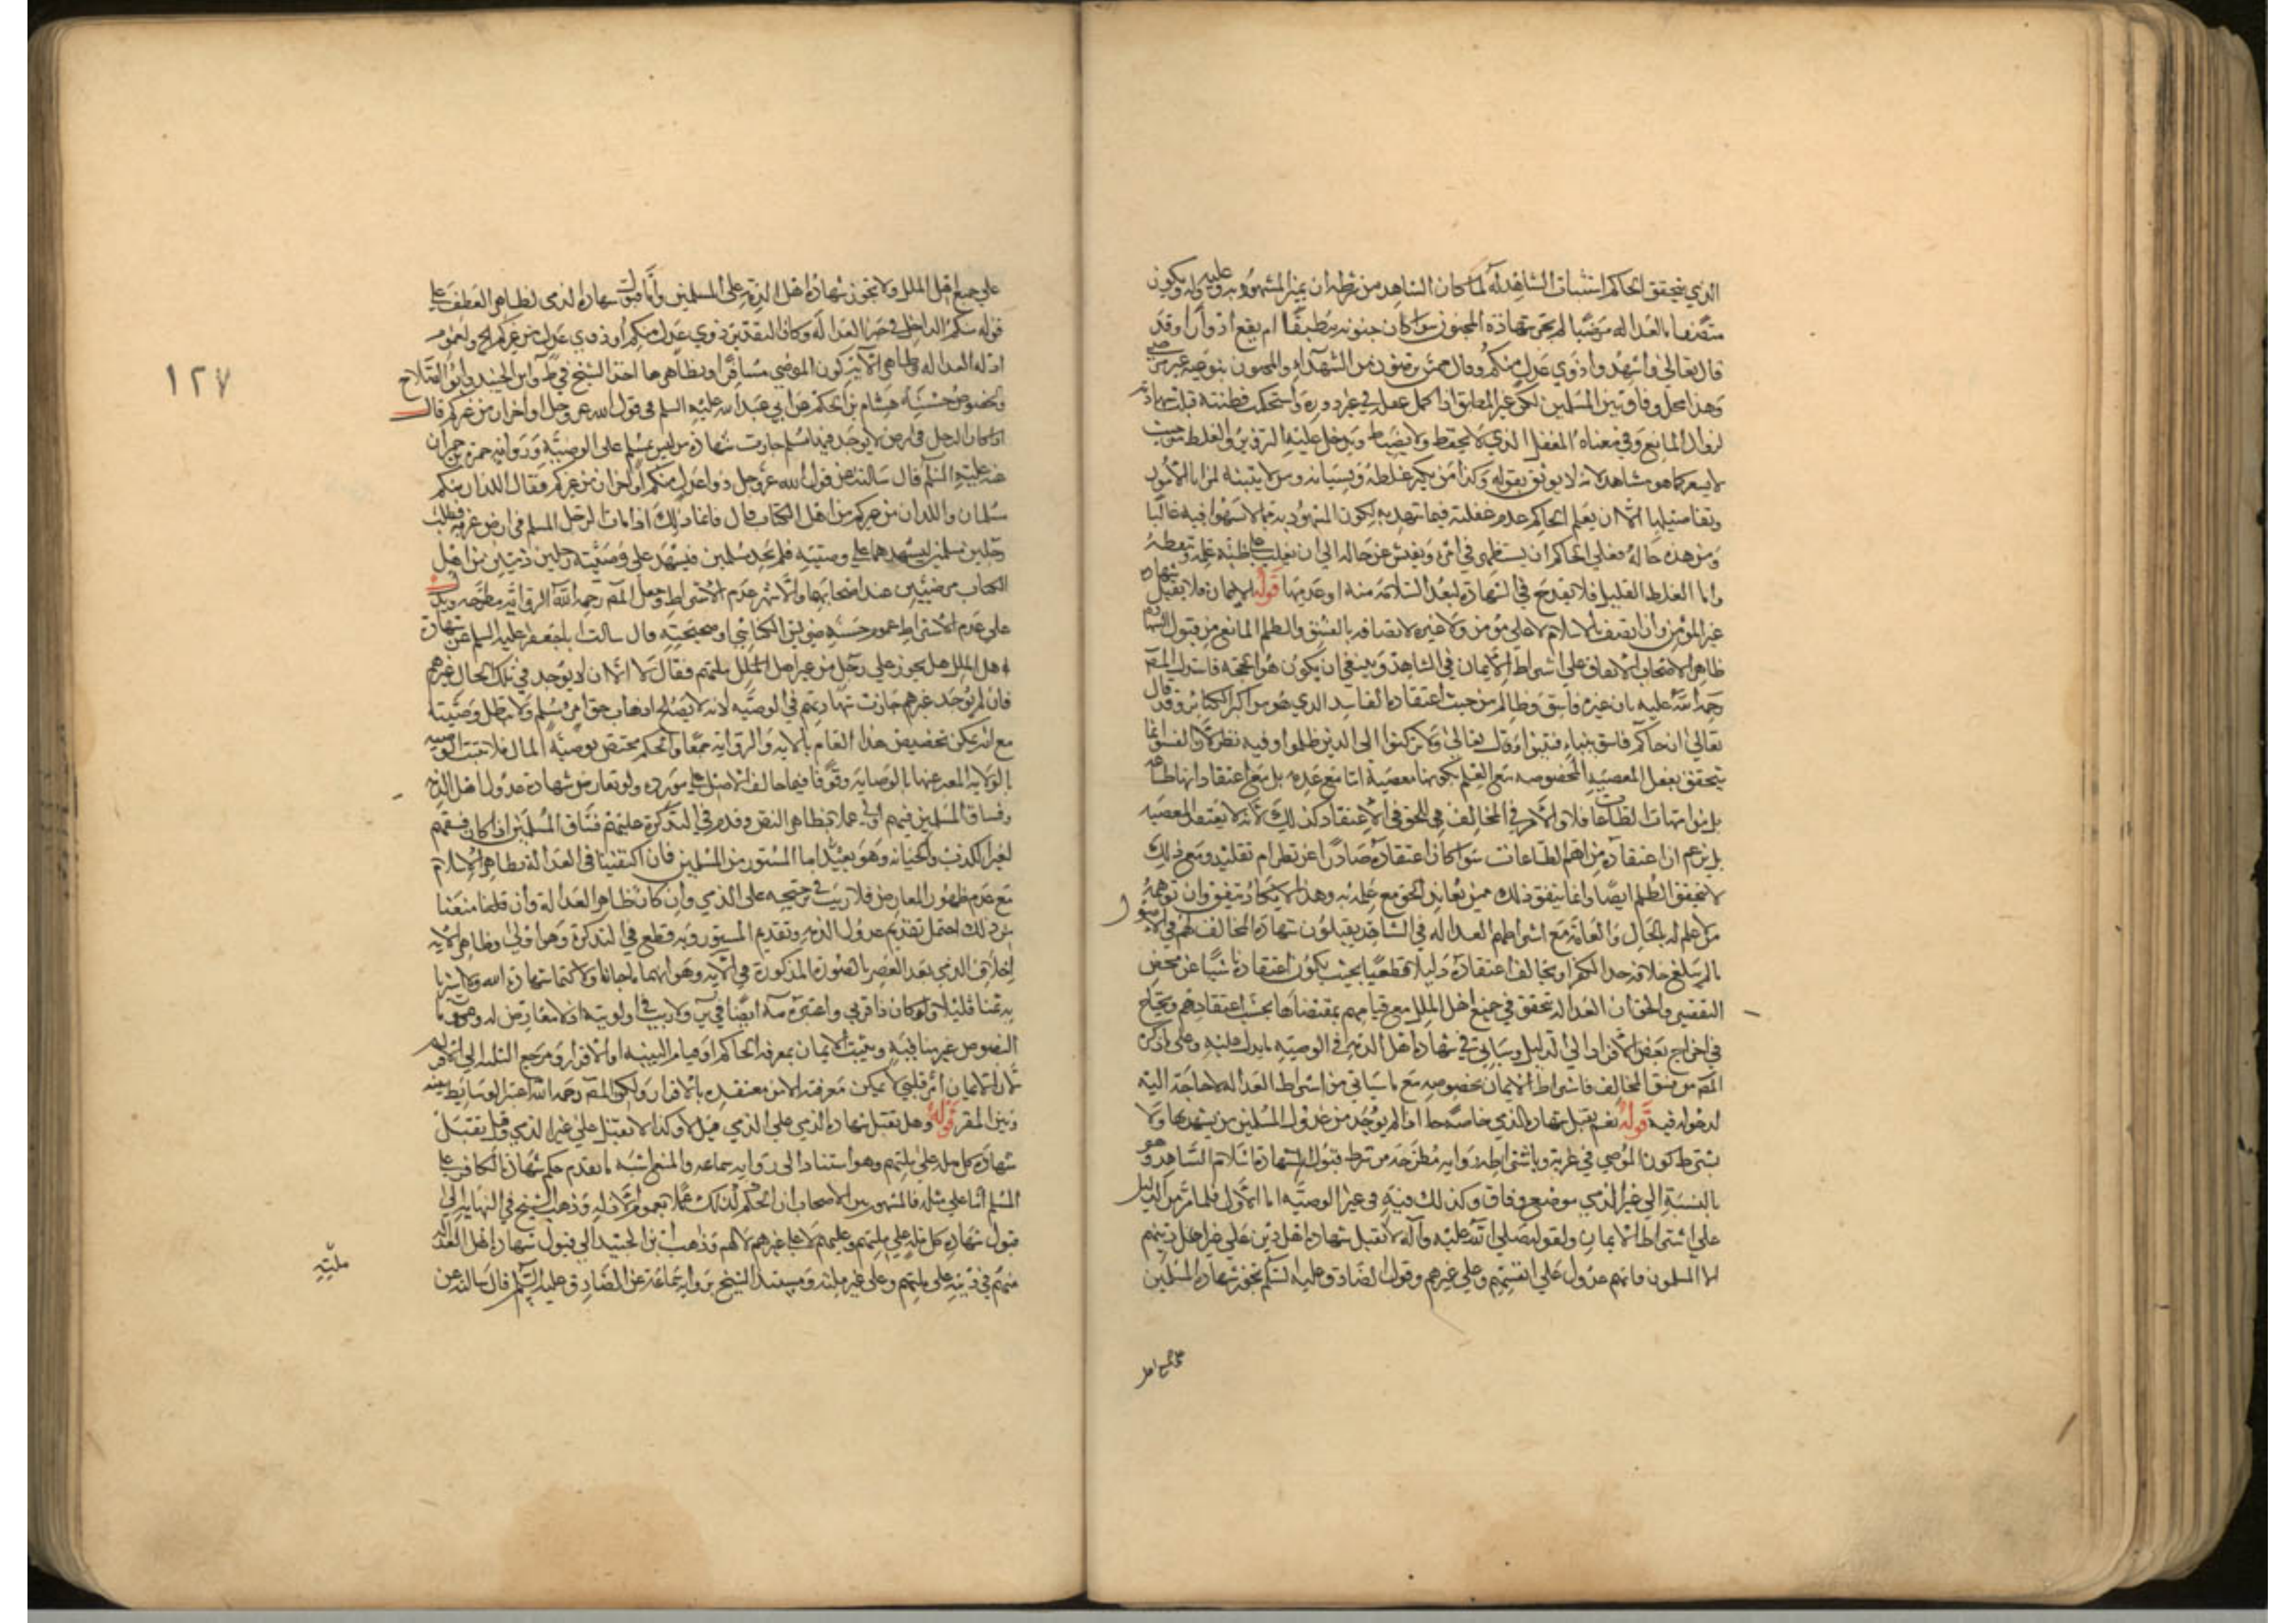 الذي يتحقق الحاكم استثبات الشاهد له لما كان الشاهد من شرطه ان يميز المشهود به وعليه وله ويكون
متصفا بالعدالة مرضيا لم يجز شهادة المجنون سواء كان جنونه مطبقا ام يقع ادوارا وقد
قال تعالى واشهدوا ذوي عدل منكم وقال ممن ترضون من الشهداء والمجنون بنوعيه غير مرضي
وهذا محل وفاق بين المسلمين لكن غير المطبق اذا كمل عقله في غير دوره واستحكمت فطنته قبلت شهادته
لزوال المانع وفي معناه المغفل الذي لا يحفظ ولا يضبط ويدخل عليه التزوير والغلط من حيث
لا يشعر كما هو مشاهد لانه لا يوثق بقوله وكذا من يكثر غلطه ونسيانه ومن لا يتنبه لمزايا الامور
وتفاصيلها الا ان يعلم الحاكم عدم غفلته فيما شهد به لكون المشهود به مما لا يسهوا فيه غالبا
ومن هذه حاله فعلى الحاكم ان يستظهر في امره ويفتش عن حاله الى ان يغلب على ظنه علمه وتيقظه
واما الغلط القليل فلا يقدح في الشهادة لبعد السلامة منه او عدمها قوله الايمان فلا يقبل شهادة
غير المؤمن وان اتصف بالاسلام لا على مؤمن ولا غيره لاتصافه بالفسق والظلم المانع من قبول الشهادة
ظاهر الاصحاب الاتفاق على اشتراط الايمان في الشاهد وينبغي ان يكون هو الحجة فاستدل المص
رحمة الله عليه بان غيره فاسق وظالم من حيث اعتقاده الفاسد الذي هو من اكبر الكبائر وقد قال
تعالى ان جاءكم فاسق بنباء فتبينوا وقال تعالى ولا تركنوا الى الذين ظلموا وفيه نظر لان الفسق انما
يتحقق بفعل المعصية المخصوصة مع العلم بكونها معصية اما مع عدمه بل مع اعتقاد انها طاعة
بل من امهات الطاعات فلا والامر في المخالف للحق في الاعتقاد كذلك لانه لا يعتقد المعصية
بل يزعم ان اعتقاده من اهم الطاعات سواء كان اعتقاده صادرا عن نظر ام تقليد ومع ذلك
لا يتحقق الظلم ايضا وانما يتفق ذلك ممن يعاند الحق مع علمه به وهذا لا يكاد يتفق وان توهمه
من لا علم له بالحال والعامة مع اشتراطهم العدالة في الشاهد يقبلون شهادة المخالف لهم في الاصول
ما لم يبلغ خلافه حد الكفر او يخالف اعتقاده دليلا قطعيا بحيث يكون اعتقاده ناشيا عن محض
التقصير والحق ان العدالة تتحقق في جميع اهل الملل مع قيامهم بمقتضاها بحسب اعتقادهم ويحتاج
في اخراج بعض الافراد الى الدليل وسياتي في شهادة اهل الذمة في الوصية ما يدل عليه وعلى ما ذكره
المص من فسق المخالف فاشتراط الايمان بخصوصه مع ما سياتي من اشتراط العدالة لا حاجة اليه
لدخوله فيه قوله نعم يقبل شهادة الذمي خاصة اذا لم يوجد من عدول المسلمين من يشهد بها ولا
يشترط كون الموصي في غربة وباشتراطه رواية مطرحة من شرط قبول الشهادة اسلام الشاهد وهو
بالنسبة الى غير الذمي موضع وفاق وكذلك فيه في غير الوصية اما الاول فلما مر من الدليل
على اشتراط الايمان ولقوله صلى الله عليه وآله لا تقبل شهادة اهل دين على غير اهل دينهم
الا المسلمون فانهم عدول على انفسهم وعلى غيرهم وقول الصادق عليه السلام تجوز شهادة المسلمين
على جميع اهل
على جميع اهل الملل ولا تجوز شهادة اهل الذمة على المسلمين وانما قبلت شهادة الذمي لظاهر العطف على
قوله منكم الداخل في حيز العدالة وكان التقدير ذوي عدل منكم او ذوي عدل من غيركم الخ ولعموم
ادلة العدالة وظاهر الآية كون الموصي مسافرا وبظاهرها اخذ الشيخ في ط وابن الجنيد وابو الصلاح
ولخصوص حسنة هشام بن الحكم عن ابي عبد الله عليه السلم في قول الله عز وجل او آخران من غيركم قال
اذا كان الرجل في ارض لا يوجد فيها مسلم جازت شهادة من ليس بمسلم على الوصية ورواية حمزة بن حمران
عنه عليه السلم قال سالته عن قول الله عز وجل ذوا عدل منكم او اخران من غيركم فقال اللذان منكم
مسلمان واللذان من غيركم من اهل الكتاب قال فانما ذلك اذا مات الرجل المسلم في ارض غربة فطلب
رجلين مسلمين ليشهدهما على وصيته فلم يجد مسلمين فيشهد على وصيته رجلين ذميين من اهل
الكتاب مرضيين عند اصحابهما والاشهر عدم الاشتراط وجعل المص رحمه الله الرواية مطرحة ويدل
على عدم الاشتراط عموم حسنة ضريس الكناسي او صحيحته قال سالت ابا جعفر عليه السلم عن شهادة
اهل الملل هل يجوز على رجل من غير اهل ملتهم فقال لا الا ان لا يوجد في تلك الحال غيرهم
فان لم يوجد غيرهم جازت شهادتهم في الوصية لانه لا يصلح اذهاب حق امرئ مسلم ولا تبطل وصيته
مع انه يمكن تخصيص هذا العام بالآية والرواية جمعا والحكم مختص بوصية المال فلا تثبت الوصية
بالولاية المعبر عنها بالوصاية وقوفا فيما خالف الاصل على مورده ولو تعارض شهادة عدول اهل الذمة
وفساق المسلمين فهم اولى عملا بظاهر النص وقدم في التذكرة عليهم فساق المسلمين اذا كان فسقهم
لغير الكذب والخيانة وهو بعيد اما المستور من المسلمين فان اكتفينا في العدالة بظاهر الاسلام
مع عدم ظهور المعارض فلا ريب في ترجيحه على الذمي وان كان ظاهر العدالة وان قلنا منعنا
من ذلك احتمل تقديم عدول الذمة وتقديم المستور وبه قطع في التذكرة وهو اولى وظاهر الآية
احلاف الذمي بعد العصر بالصورة المذكورة في الآية وهو انهما ما خانا ولا كتما شهادة الله ولا اشتريا
به ثمنا قليلا ولو كان ذا قربى واعتبره مة ايضا في ير ولا ريب في اولويته اذ لا معارض له وعموم
النصوص غير مناف به ويثبت الايمان بمعرفة الحاكم او قيام البينة او الاقرار ومرجع الثلثة الى الاقرار
لان الايمان امر قلبي لا يمكن معرفته الا من معتقده بالاقرار ولكن المص رحمه الله اعتبر الوسايط بينه
وبين المقر قوله وهل تقبل شهادة الذمي على الذمي قيل لا وكذا لا تقبل على غير الذمي وقيل تقبل
شهادة كل ملة على ملتهم وهو استناد الى رواية سماعة والمنع اشبه ما تقدم حكم شهادة الكافر على
المسلم اما على مثله فالمشهور بين الاصحاب ان الحكم كذلك عملا بعموم الادلة وذهب الشيخ في النهاية الى
قبول شهادة كل ملة على ملتهم وعليهم لا على غيرهم ولا لهم وذهب ابن الجنيد الى قبول شهادة اهل العدالة
منهم في دينه على ملتهم وعلى غير ملته ومستند الشيخ رواية سماعة عن الصادق عليه السلم قال سالته عن
ملته
١٢٧